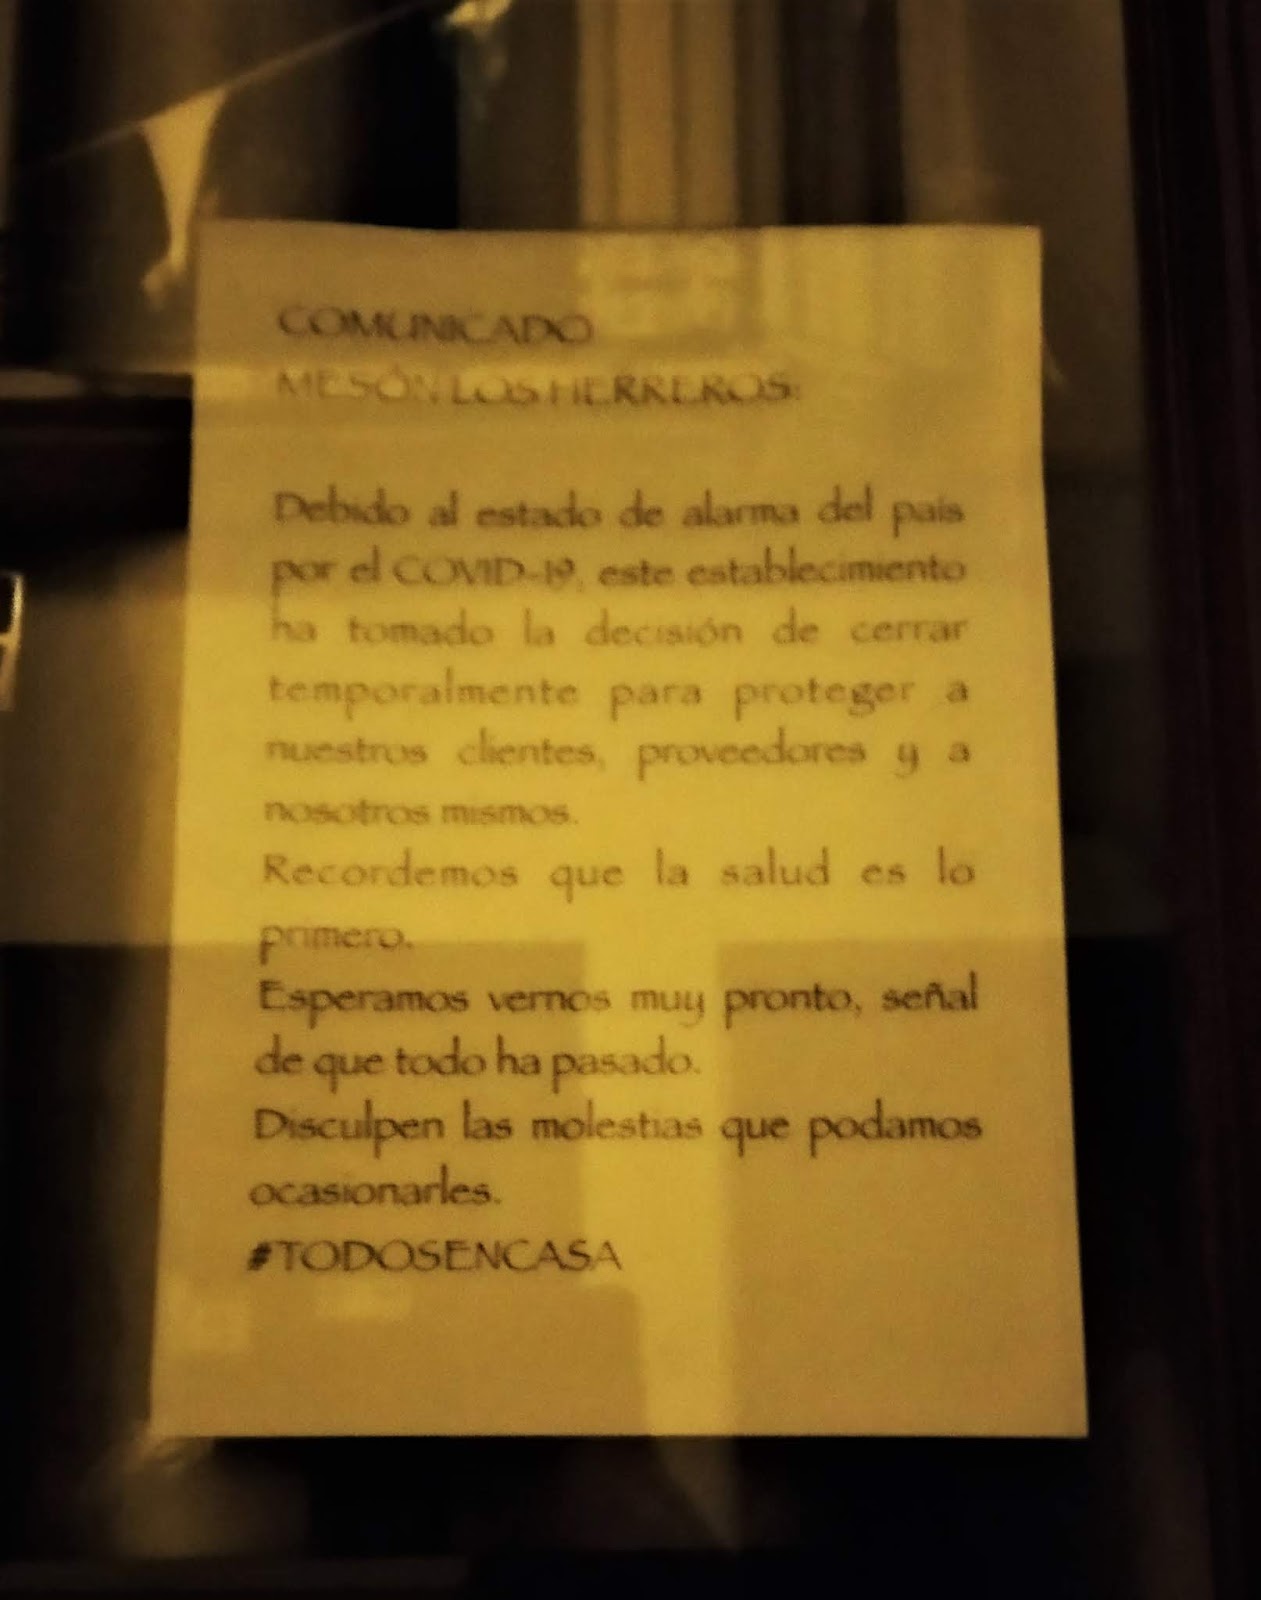 COMUNICADO
MESÓN LOS HERREROS:
Debido al estado de alarma del país
por el COVID-19, este establecimiento
ha tomado la decisión de cerrar
temporalmente para proteger a
nuestros clientes, proveedores y a
nosotros mismos.
Recordemos que la salud es lo
primero.
Esperamos vernos muy pronto, señal
de que todo ha pasado.
Disculpen las molestias que podamos
ocasionarles.
#TODOSENCASA